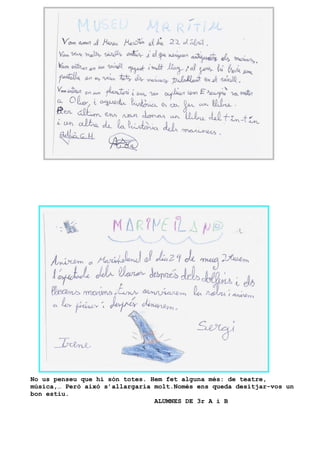 MUSEU MARÍTIM
Vam anar al Museu Marítim el dia 22 d'abril.
Vam veure molts vaixells antics i el que menjaven antigament els mariners.
Vam entrar en un vaixell aquest i molt llarg i al fons hi havia una
pantalla on es veien tots els mariners treballant en el vaixell.
Vam entrar en un planetari i ens van explicar com
a Otger, i aquesta història es va fer un llibre.
Per últim ens van donar un llibre del tin-tin
i un altre de la història dels mariners.
MARINELAND
Anirem a Marineland el dia 29 de maig. Veurem
l'espectacle dels lloros després dels dofins i els
lleons marins. Ens canviarem la roba i anirem
a les piscines i després dinarem.
Sergi
Irene
No us penseu que hi són totes. Hem fet alguna més: de teatre,
música,… Però això s'allargaria molt.Només ens queda desitjar-vos un
bon estiu.
ALUMNES DE 3r A i B